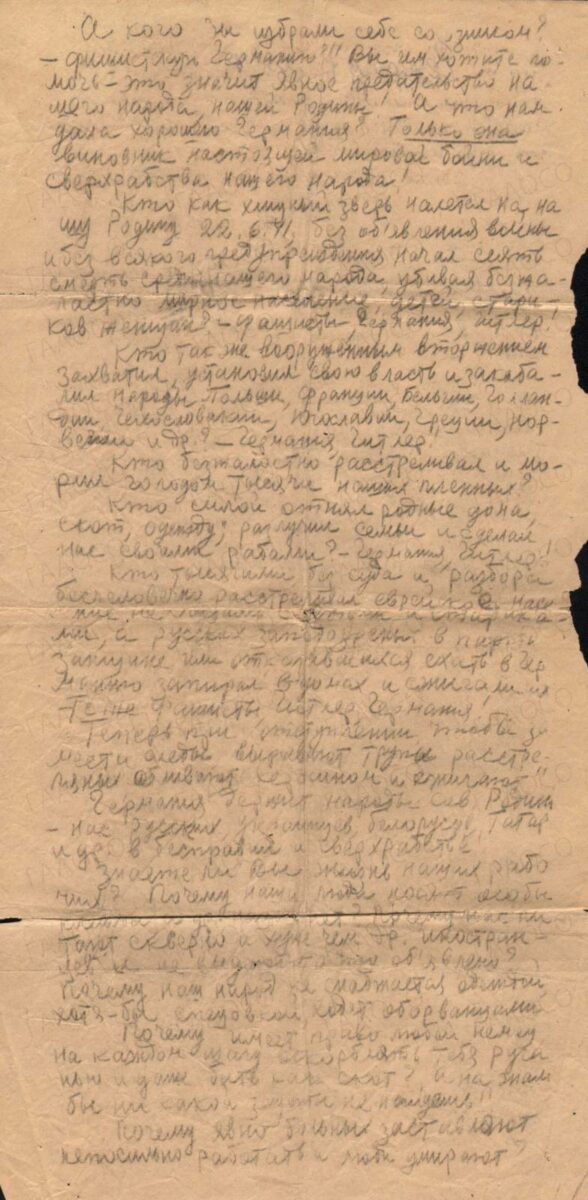 А кого же избрали себе союзником?
– фашистскую Германию!!! Вы им хотите по-
мочь – это значит явное предательство на-
шего народа, нашей Родины! А что нам
дала хорошего Германия? Только она
виновник настоящей мировой войны и
сверхрабства нашего народа!
Кто как хищный зверь налетел на на
шу Родину 22.6.41, без об'явления войны
и без всякого предупреждения начал сеять
смерть среди нашего народа, убивая безжа-
лостно мирное население, детей, стари-
ков женщин? – фашисты, Германия, Гитлер!
Кто так же вооруженным вторжением
захватил, установил свою власть и закаба-
лил народы Польши, Франции, Бельгии, Голлан-
дии, Чехословакии, Югославии, Греции, Нор-
вегии и др.? – Германия, Гитлер!!
Кто безжалостно расстреливал и мо-
рил голодом тысячи наших пленных?
Кто силой отнял родные дома,
скот, одежду; разлучил семьи и сделал
нас своими рабами? – Германия, Гитлер!
Кто тысячами без суда и разбора
бесчеловечно расстреливал еврейское насе
ми, а русских заподозреных в парти
занщине или отказавшихся ехать в Гер
манию запирал в домах и сжигали
– Те же фашисты Гитлер Германия
Теперь при отступлении чтобы за
мести следы вырывают трупы расстре-
ляных обливают керосином и сжигают!!
Германия держит народы Сов. Родины
– нас Русских, украинцев, белорусов, Татар
и др. в бесправии и сверхрабстве!
Знаете ли Вы жизнь наших рабо
чих? Почему наши люди носят особы
Почему нас пи
тают скверно и хуже чем др. иностран-
цев и не выдают что об'явлено?
Почему наш народ не снабжается одеждой
хотя-бы спецовкой, ходят оборванцами
Почему имеет право любой немец
на каждом шагу оскорблять тебя руга
нью и даже бить как скот? и на
бы ни какой защиты не найдешь!!
Почему явно больных заставляют
непосильно работать и люди умирают?